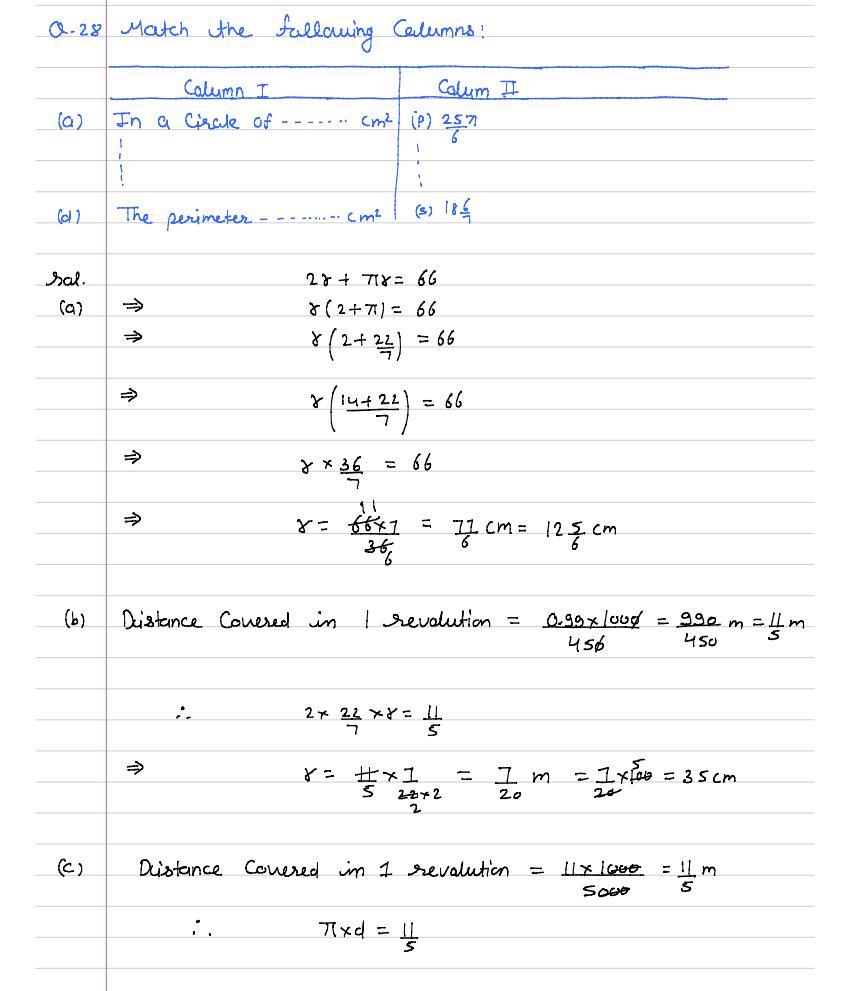 Q.28 Match the following Columns:
Column I Colum II
(a) In a Circle of ------- cm² (p) 25π/6
(d) The perimeter ---------- cm² (s) 18 6/7
Sol. 2r + πr = 66
(a) ⇒ r(2+π) = 66
⇒ r(2+22/7) = 66
⇒ r((14+22)/7) = 66
⇒ r × 36/7 = 66
⇒ r = 11 66×7/36 6 = 77/6 cm = 12 5/6 cm
(b) Distance Covered in 1 revolution = 0.99×1000/450 = 990/450 m = 11/5 m
∴ 2× 22/7 ×r = 11/5
⇒ r = 11/5 × 7/22×2 2 = 7/20 m = 7/20 × 100 5 = 35 cm
(c) Distance Covered in 1 revolution = 11×1000/5000 = 11/5 m
∴ π×d = 11/5